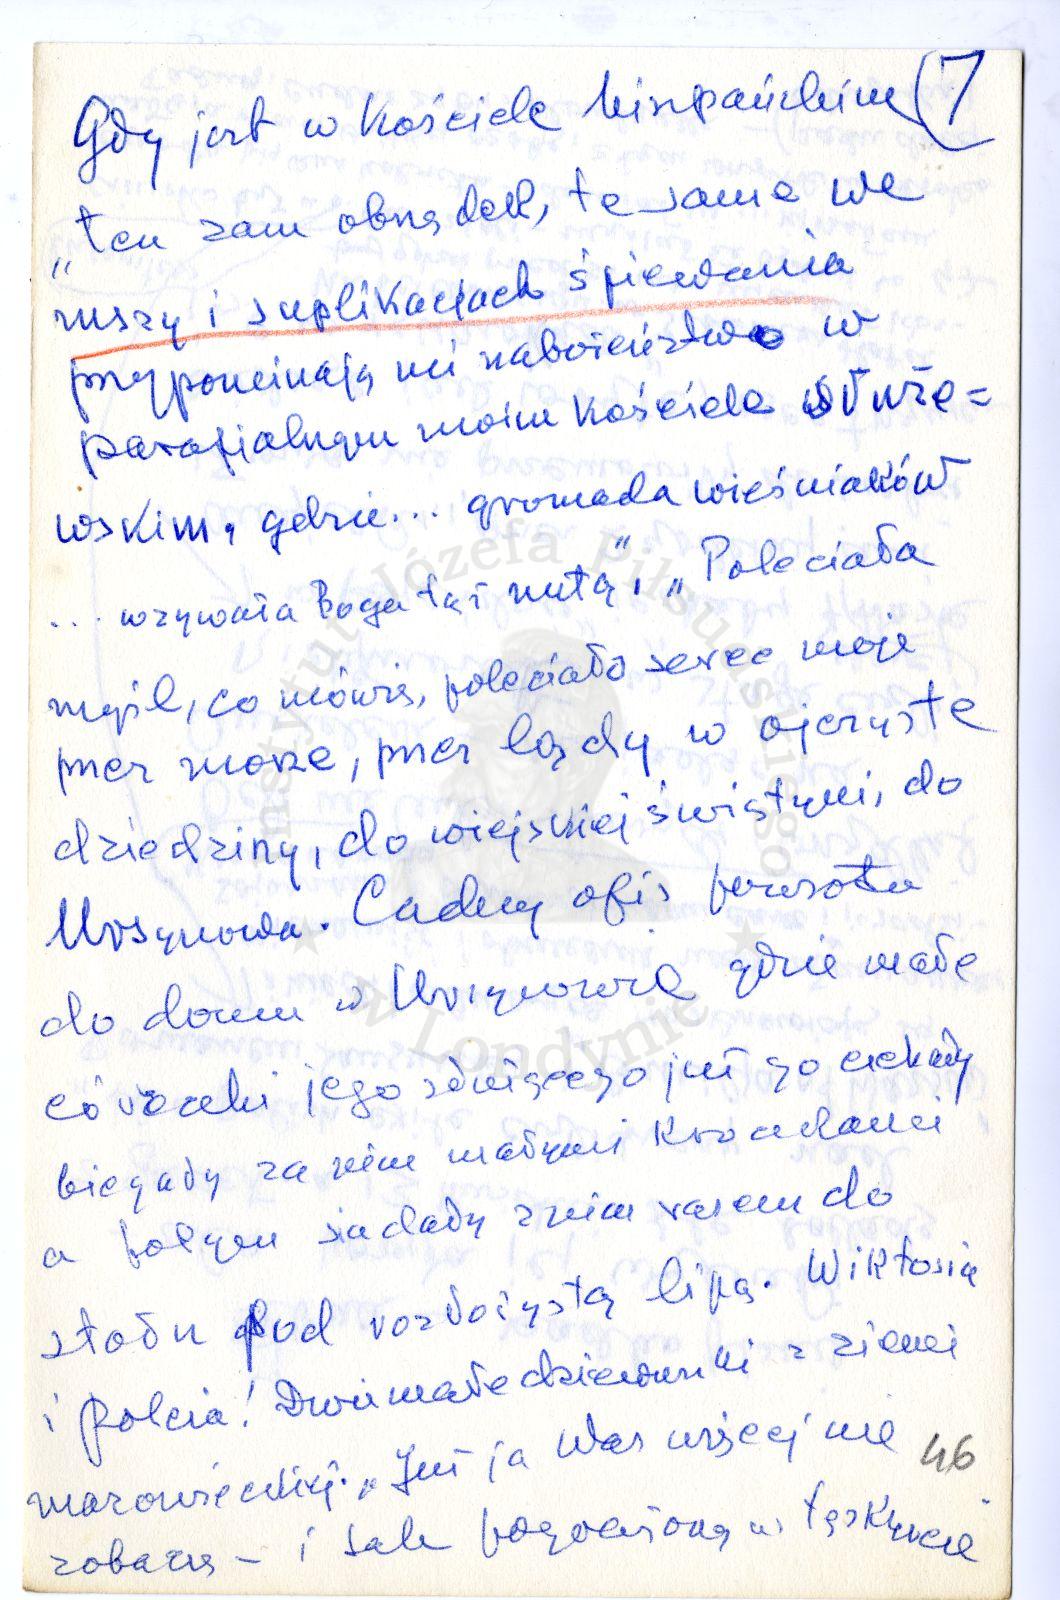 Gdy jest w Kościele hiszpańskim (7
„ten sam obrządek, te same we
mszy i suplikacjach śpiewania
przypominają mi nabożeństwo w
parafialnym moim Kościele Służe=
wskim, gdzie... gromada wieśniaków
... wzywała Boga tąż nutą". „Poleciała
myśl, co mówię, poleciało serce moje
przez morze, przez lądy w ojczyste
dziedziny, do wiejskiej świątyni, do
Ursynowa. Cudny opis powrotu
do domu w Ursynowie gdzie małe
córeczki jego służącego już go czekały
biegały za nim małymi kroczkami
a potym siadały z nim razem do
stołu pod rozłożystą lipą. Wiktosia
i Polcia! Dwie małe dziewczynki z ziemi
mazowieckiej. „Już ja Was więcej nie 46
zobaczę – i tak pogrążoną w tęsknocie
Instytut Józefa Piłsudskiego
★ w Londynie ★